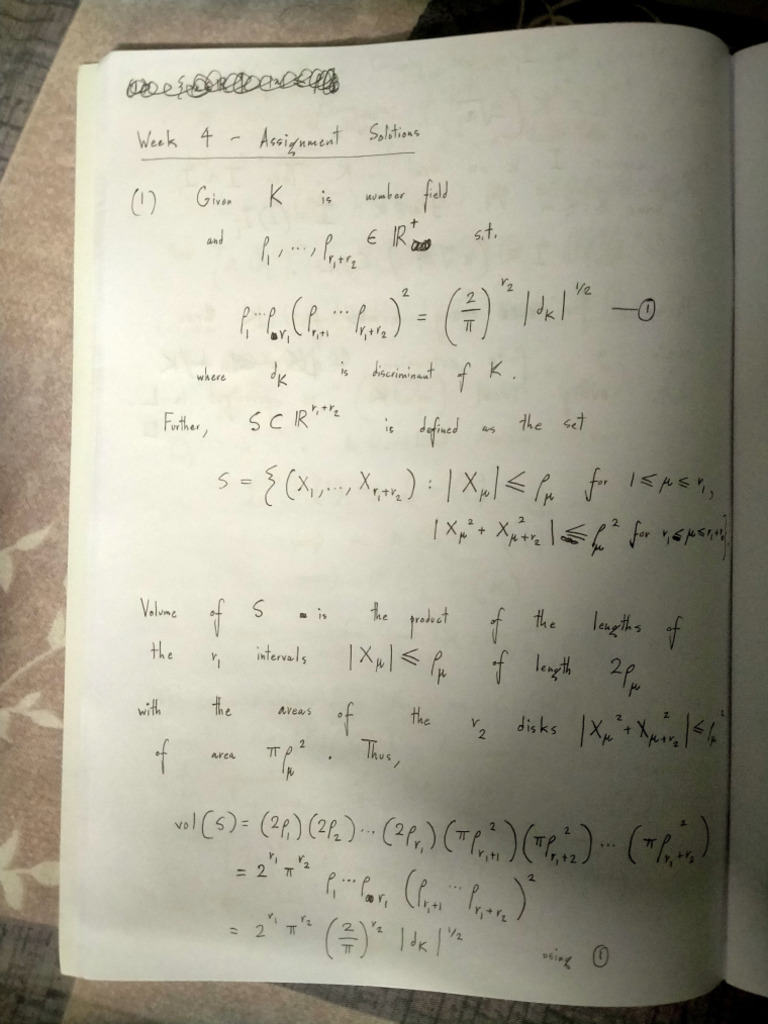 Week 4 - Assignment Solutions
(1) Given K is number field
and ρ₁, ..., ρ_{r₁+r₂} ∈ ℝ⁺ s.t.
ρ₁...ρ_{r₁} (ρ_{r₁+1} ... ρ_{r₁+r₂})² = (2/π)^{r₂} |d_K|^{1/2} —①
where d_K is discriminant of K.
Further, S ⊂ ℝ^{r₁+r₂} is defined as the set
S = {(X₁, ..., X_{r₁+r₂}) : |X_μ| ≤ ρ_μ for 1 ≤ μ ≤ r₁,
|X_μ² + X²_{μ+r₂}| ≤ ρ_μ² for r₁ ≤ μ ≤ r₁+r₂}
Volume of S is the product of the lengths of
the r₁ intervals |X_μ| ≤ ρ_μ of length 2ρ_μ
with the areas of the r₂ disks |X_μ² + X²_{μ+r₂}| ≤ ρ_μ²
of area πρ_μ². Thus,
vol(S) = (2ρ₁)(2ρ₂)...(2ρ_{r₁})(πρ²_{r₁+1})(πρ²_{r₁+2}) ... (πρ²_{r₁+r₂})
= 2^{r₁} π^{r₂} ρ₁...ρ_{r₁} (ρ_{r₁+1} ... ρ_{r₁+r₂})²
= 2^{r₁} π^{r₂} (2/π)^{r₂} |d_K|^{1/2} using ①